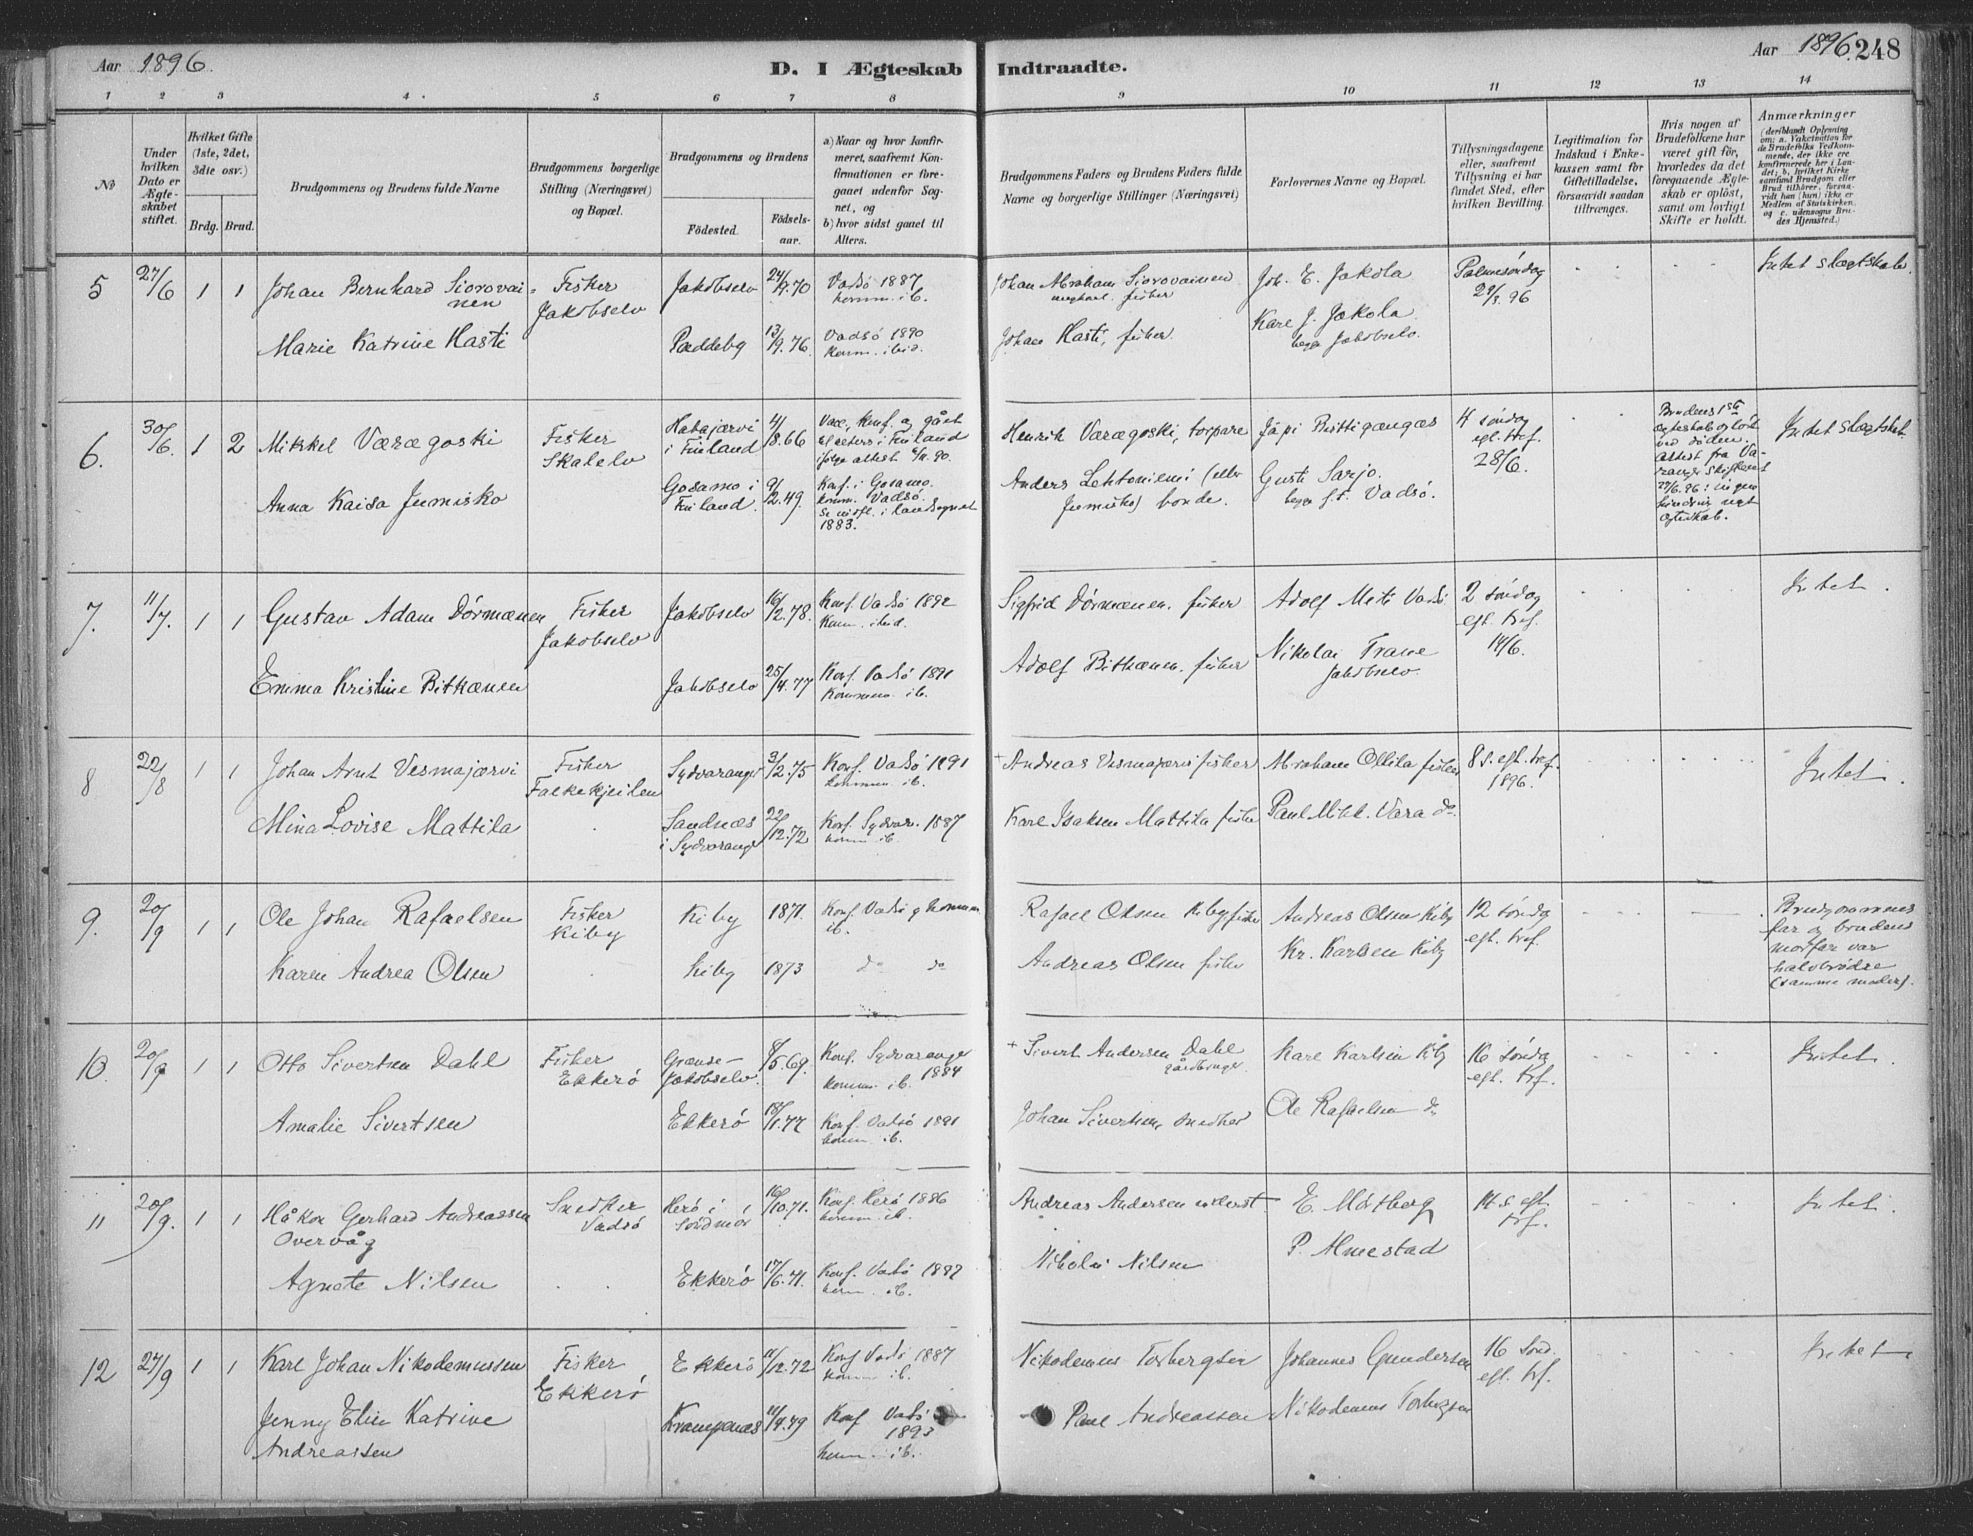 Aar 1896.
D. I Ægteskab Indtraadte.
Aar 1896. 248
1 2 3 4 5 6 7 8 9 10 11 12 13 14
No
Under hvilken Dato er Ægteskabet stiftet.
Hvilket Gifte (1ste, 2det, 3die osv.)
Brdg. Brud.
Brudgommens og Brudens fulde Navne
Brudgommens borgerlige Stilling (Næringsvei) og Bopæl.
Brudgommens og Brudens
Fødested.
Fødsels-aar.
a) Naar og hvor konfirmeret, saafremt Konfirmationen er foregaaet udenfor Sognet, og
b) hvor sidst gaaet til Alters.
Brudgommens Faders og Brudens Faders fulde Navne og borgerlige Stillinger (Næringsvei)
Forlovernes Navne og Bopæl.
Tillysningsdagene eller, saafremt Tillysning ei har fundet Sted, efter hvilken Bevilling.
Legitimation for Indskud i Enkekassen samt for Giftetilladelse, forsaavidt saadan tiltrænges.
Hvis nogen af Brudefolkene har været gift før, hvorledes da det foregaaende Ægteskab er opløst, samt om lovligt Skifte er holdt.
Anmærkninger
(deriblandt Oplysning om: a. Vaksination for de Brudefolks Vedkommende, der ikke ere konfirmerede her i Landet; b. hvilket Kirkesamfund Brudgom eller Brud tilhører, forsaavidt han (hun) ikke er Medlem af Statskirken, og c. udensogns Brudes Hjemsted.)
5 27/6 1 1 Johan Bernhard Siorovainen Fisker Jakobselv Jakobselv 24/9.70 Vadsö 1887 komm. ib.
Johan Abraham Siorovainen fisker Joh. E. Jakola Palmesöndag 29/3.96 Intet slægtskab.
Marie Katrine Hasti Paddeby 13/9.76. Vadsö 1890 komm. ibid.
Johan Hasti, fisker. Karl J. Jakola begge Jakobselv.
6. 30/6. 1 2 Mikkel Værægoski Fisker Skalelv i Finland /8.66
Henrik Væragoski, torpare 4 söndag eft. tref. 28/6. Intet slægtsk.
Brudens 1ste ægteskab oplöst ved döden. Attest fra Varanger
Anna Kaisa Jumisko Gosamo i Finland. 9/12.49. Konf. i Gosamo. komm. Vadsö. 1883.
Anders Lehtoniemi (eller Jumisko) bonde. Gusti Sarjo. begge f. Vadsö.
7. 11/7. 1 1 Gustav Adam Dörmænen Fisker Jakobselv Jakobselv 16/2.78. Konf. Vadsö 1892 Kom. ibid.
Sigfrid Dörmænen. fisker Adolf Meti Vadsö 2 söndag eft. tref. 14/6. Intet.
Emma Kristine Pitkænen Jakobselv 25/4.77 Konf. Vadsö 1891 Kommun. ib.
Adolf Pitkænen. fisker Nikolai Frane Jakobselv.
8 22/8 1 1 Johan Arnt Vesmajærvi Fisker Falkekjeilen Sydvaranger 3/2.75 Konf. Vadsö 1891 kommun ib.
+ Andreas Vesmajærvi fisker Abraham Ollila fisker 8 s. eft. tref. 1896. Intet.
Mina Lovise Mattila Sandnæs i Sydvarang. 22/12.72 Konf. Sydvar. 1887 komm ib.
Karl Isaksen Mattila fisker Paul Mikk. Vara do.
9. 20/9 1 1 Ole Johan Rafaelsen Fisker Kiby Kiby 1871. Konf. Vadsö og komm ib.
Rafael Olsen Kiby fisker Andreas Olsen Kiby 12 söndag eft. tref. Brudgommens far og brudens morfar var halvbrödre (samme moder).
Karen Andrea Olsen Kiby 1873 do do
Andreas Olsen fisker Kr. Karlsen Kiby
10. 20/9 1 1 Otto Sivertsen Dahl Fisker Ekkerö Grænse-Jakobselv. 8/5.69. Konf. Sydvaranger 1884 komm. ib.
+ Sivert Andersen Dahl gårdbruger Karl Karlsen Kiby 16 söndag eft. tref. Intet.
Amalie Sivertsen Ekkerö 18/1.77 Konf. Vadsö 1891 komm. ib.
Johan Sivertsen, snedker Ole Rafaelsen do
11 20/9. 1 1 Håkon Gerhard Andreassen Overvåg Snedker Vadsö Herö i Söndmör 16/10.71. Konf. Herö 1886 komm. ib.
Andreas Andersen E. Mörtberg 14 s. eft. trf. Intet.
Agnete Nilsen Ekkerö 17/6.71. Konf. Vadsö 1887 komm. ib.
Nikolai Nilsen P. Almestad
12 27/9 1 1 Karl Johan Nikodemussen Fisker Ekkerö Ekkerö /12.72 Konf Vadsö 1887 komm. ib.
Nikodemus Torbergsen Johannes Gundersen 16 sönd. eft. trf. Intet
Jenny Elise Katrine Andreassen Krampenæs 11/4.79 Konf Vadsö 1893 komm. ib.
Paul Andreassen Nikodemus Torbergsen